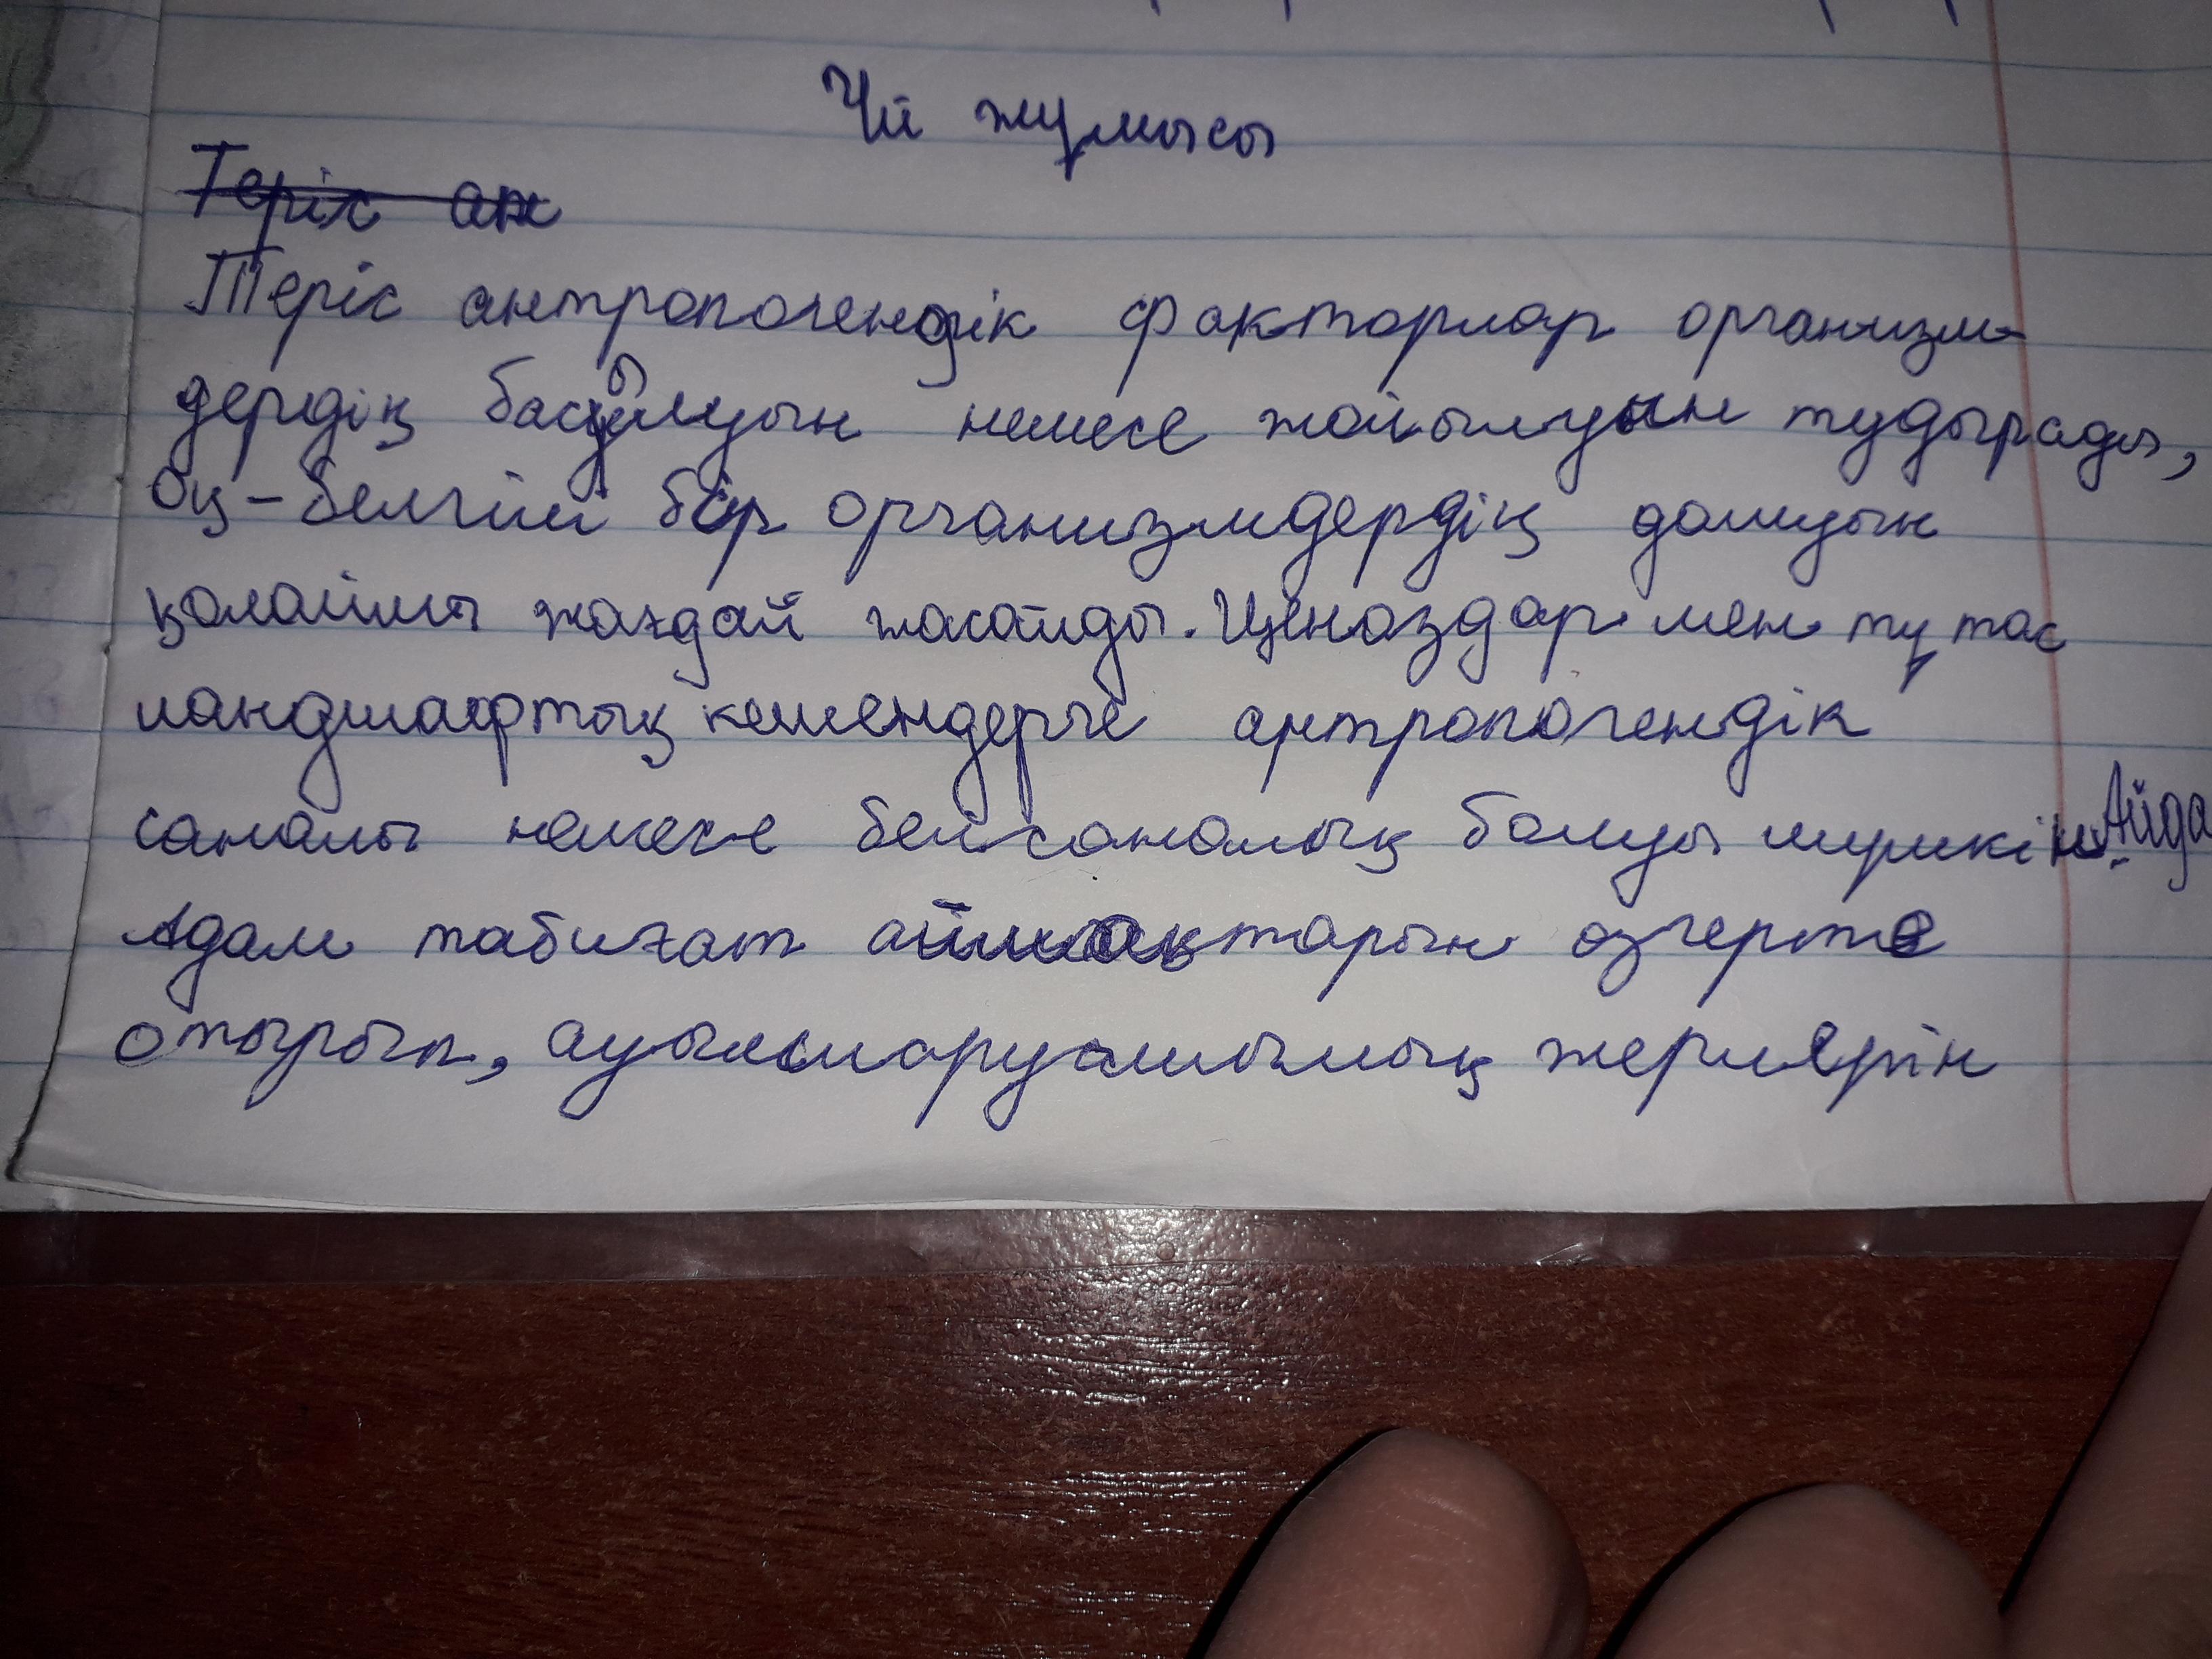 Үй жұмысы
Теріс ан
Теріс антропогендік факторлар организм-
дердің басылуын немесе жойылуын тудырады,
Оң-белгілі бір организмдердің дамуын
қолайлы жағдай жасайды. Ценоздар мен тұтас
ландшафтың кешендерге антропогендік
саналы немесе бейсаналық болуы мүмкін. Айда
Адам табиғат аймақтарын өзгерте
отырып, ауылшаруашылық жерлерін